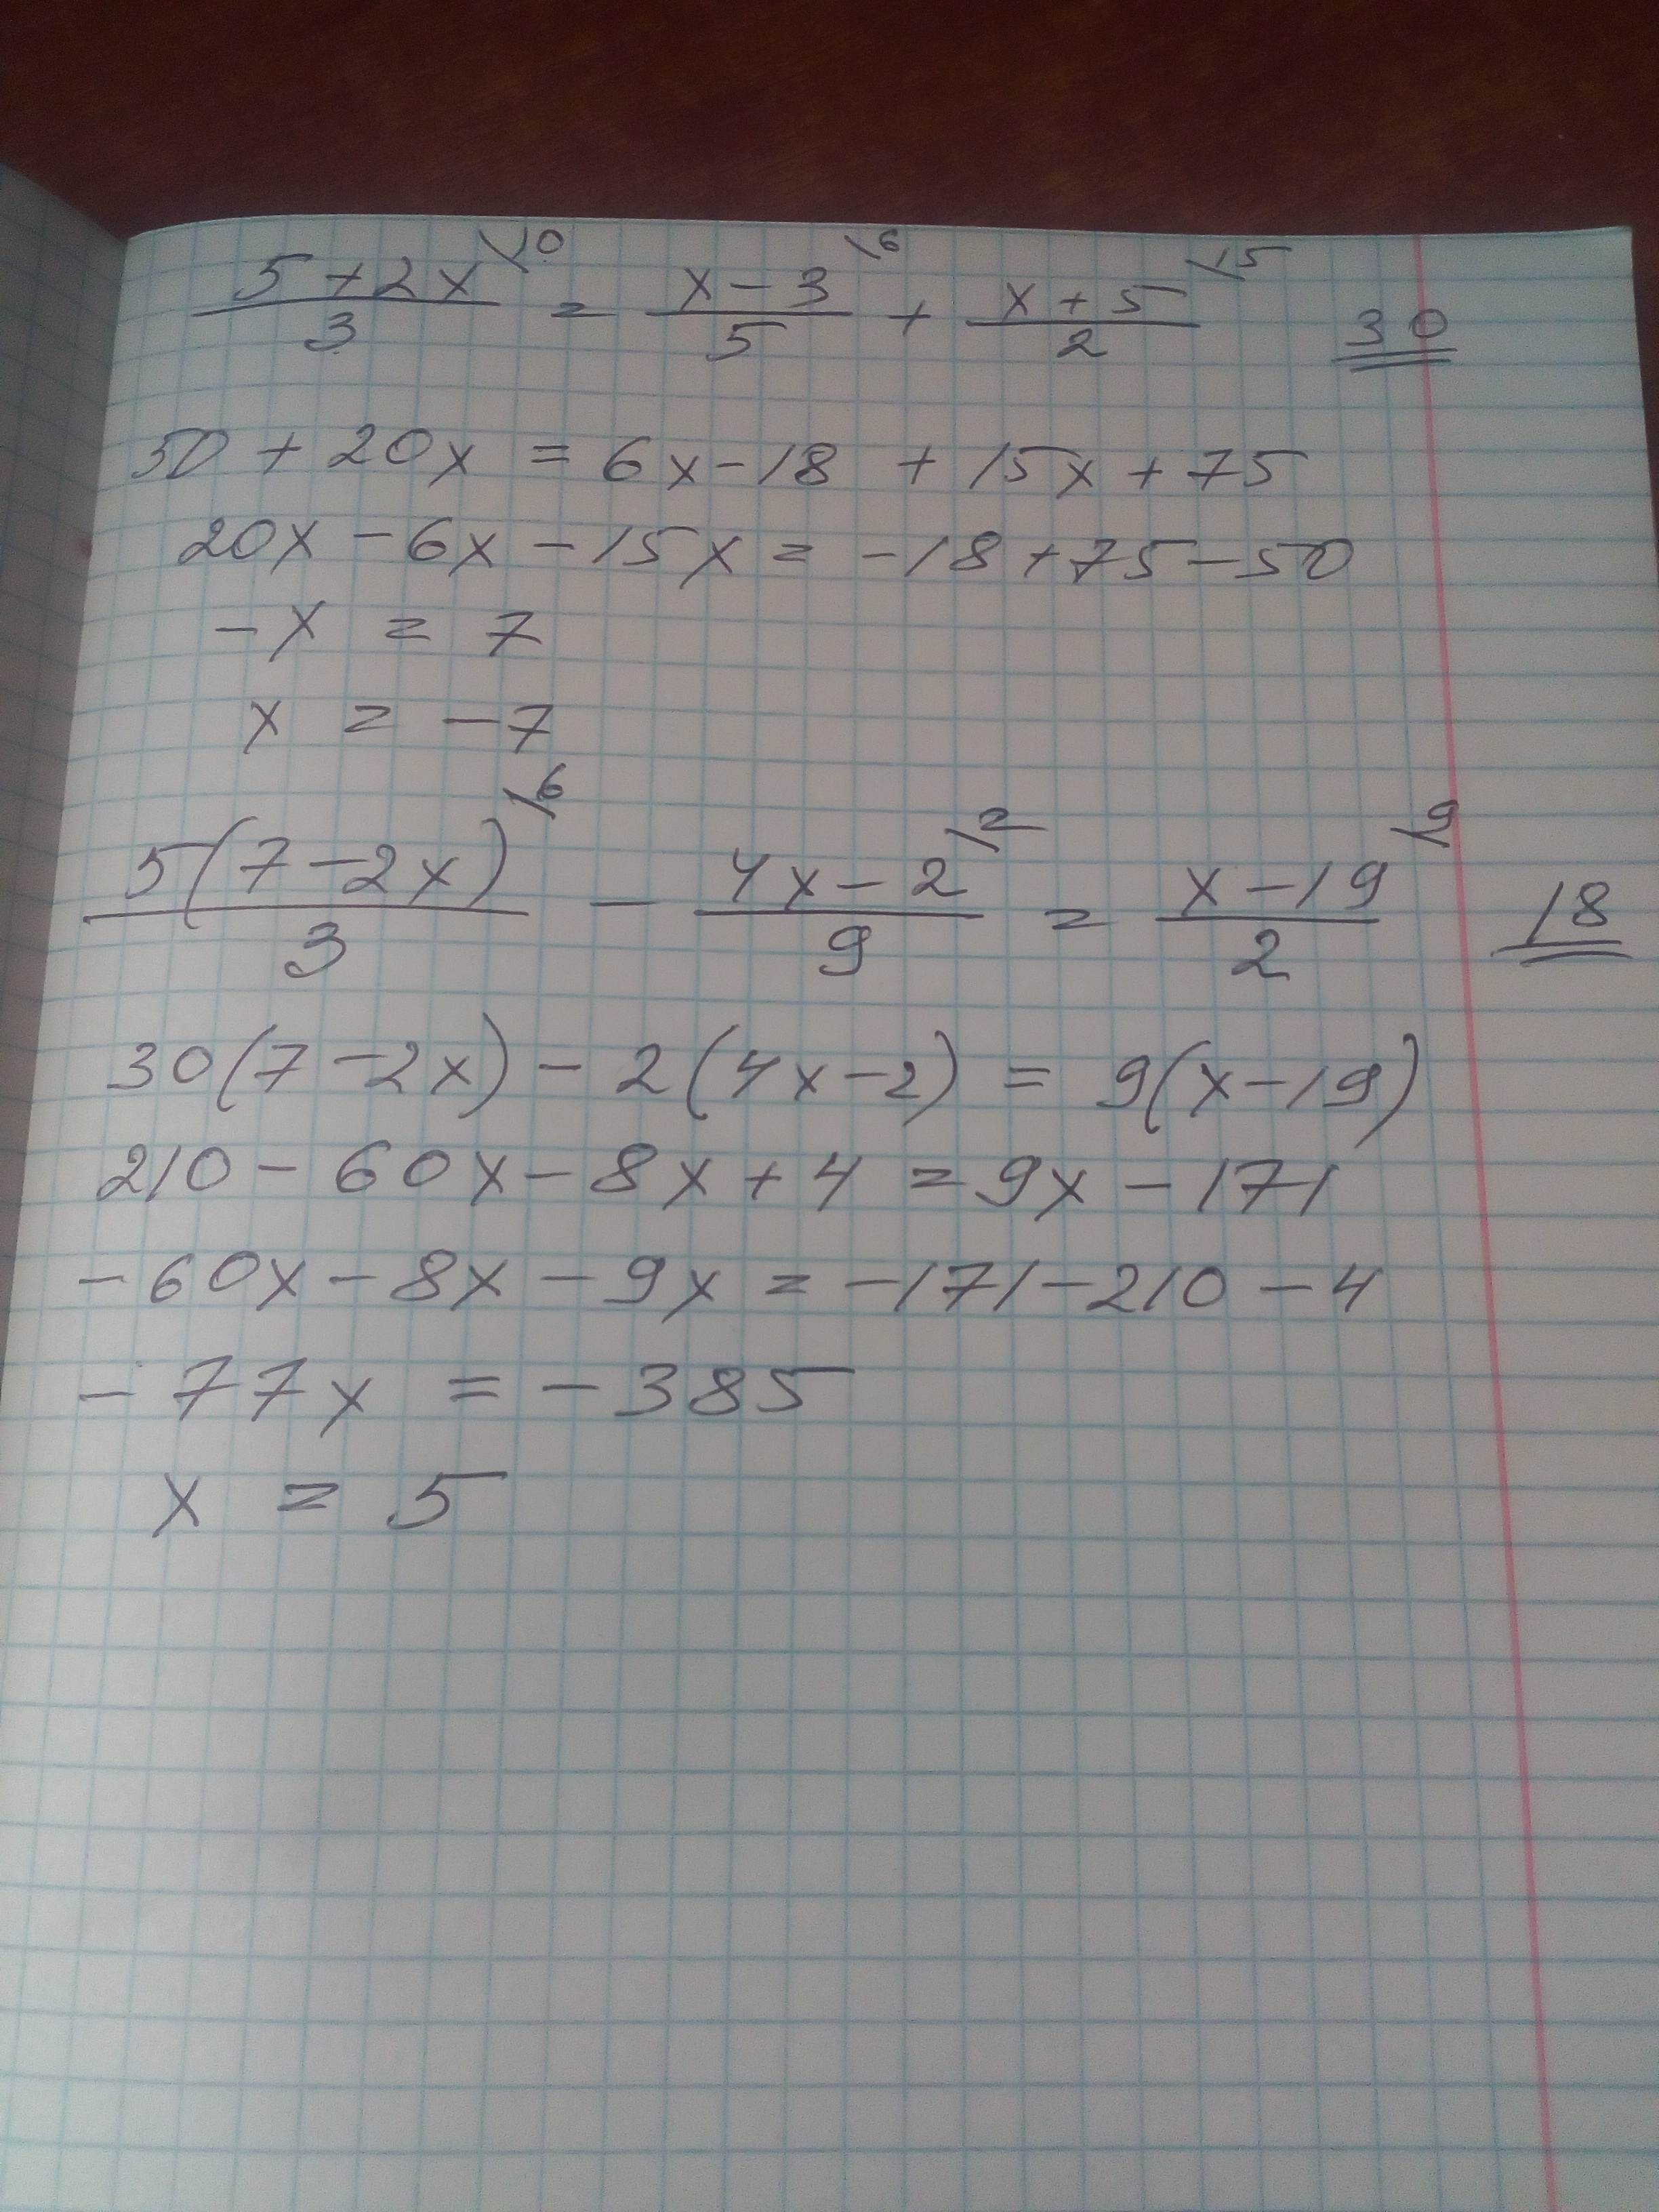 \frac{5+2x}{3}^{\10} = \frac{x-3}{5}^{\6} + \frac{x+5}{2}^{\15} 30
50 + 20x = 6x - 18 + 15x + 75
20x - 6x - 15x = -18 + 75 - 50
-x = 7
x = -7
\frac{5(7-2x)}{3}^{\6} - \frac{4x-2}{9}^{\2} = \frac{x-19}{2}^{\9} 18
30(7-2x) - 2(4x-2) = 9(x-19)
210 - 60x - 8x + 4 = 9x - 171
-60x - 8x - 9x = -171 - 210 - 4
-77x = -385
x = 5